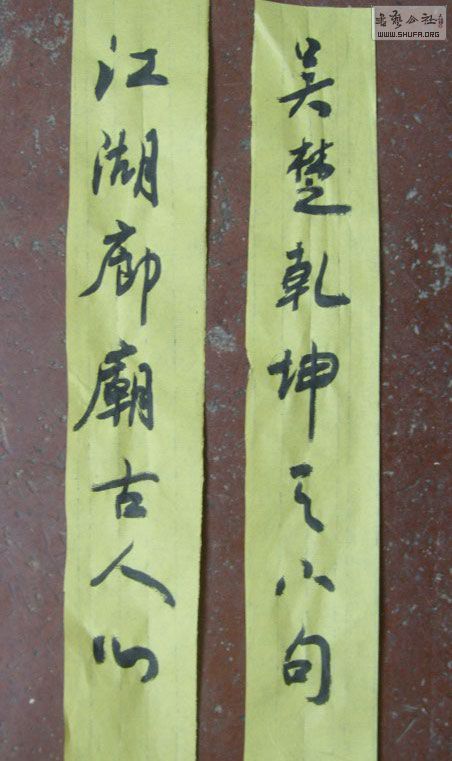 吴楚乾坤天下句
江湖廊廟古人心
书艺公社
WWW.SHUFA.ORG